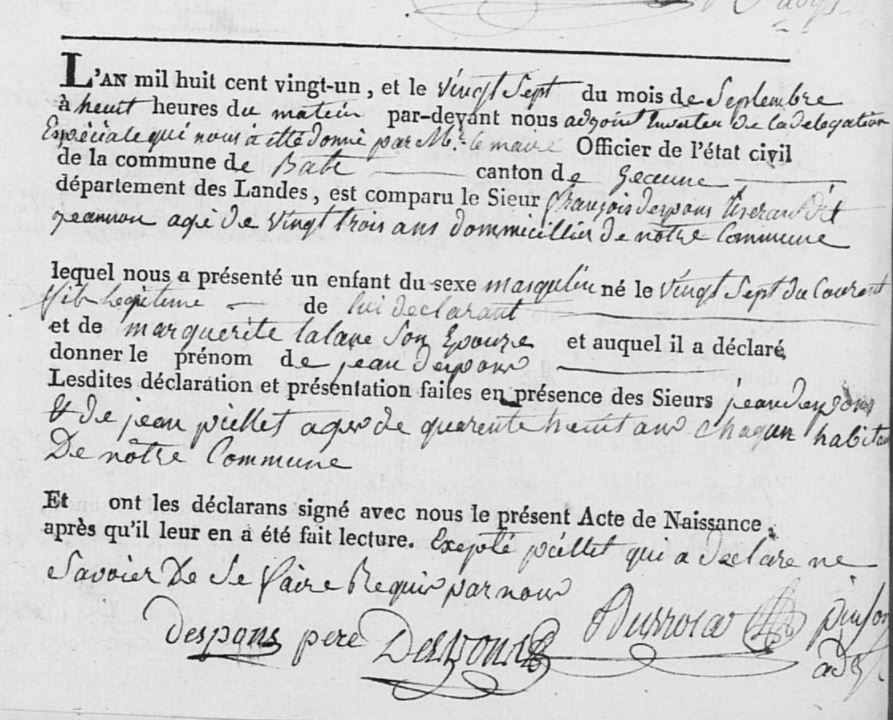 L'AN mil huit cent vingt-un, et le vingt Sept du mois de Septembre
à heut heures du matein par-devant nous adjoint de la delegation
Especiale qui nous a etté donné par Mr. le maire Officier de l'état civil
de la commune de Bats canton de Geaune
département des Landes, est comparu le Sieur françois despons tiserand dit
jeannon agé de vingt trois ans dommicillié de notre Commune
lequel nous a présenté un enfant du sexe masqulin né le vingt Sept du Courant
fils legitime de lui declarant
et de marguerite lalane Son Epouze et auquel il a déclaré
donner le prénom de jean despons
Lesdites déclaration et présentation faites en présence des Sieurs jean despons
& de jean piellet ages de quarente heuit ans chaqun habitan
De nôtre Commune
Et ont les déclarans signé avec nous le présent Acte de Naissance,
après qu'il leur en a été fait lecture. Exepté piellet qui a declare ne
Savoier De Ce faire Requis par nous
despons pere Despons